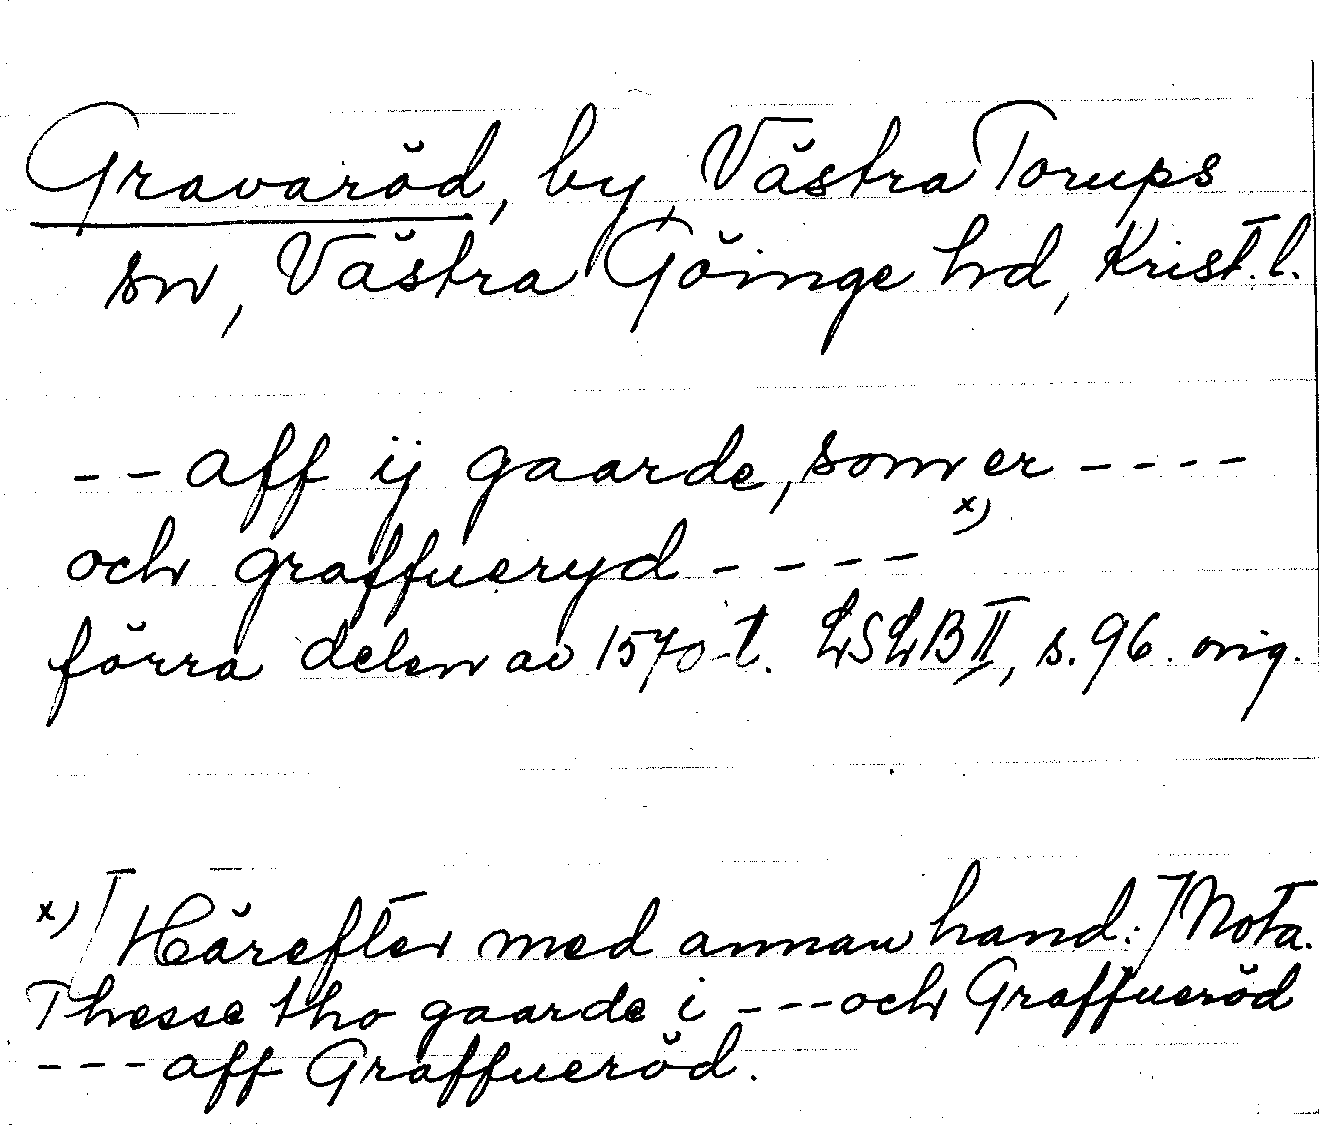 Gravaröd, by, Västra Torups
sn, Västra Göinge hd, Krist. l.
- - aff ij gaarde, som er - - - -
och graffueryd - - - - x)
förra delen av 1570-t. LSLB II, s. 96. orig.
x) [Härefter med annan hand:] Nota.
Thesse tho gaarde i - - - och Graffueröd
- - - aff Graffueröd.